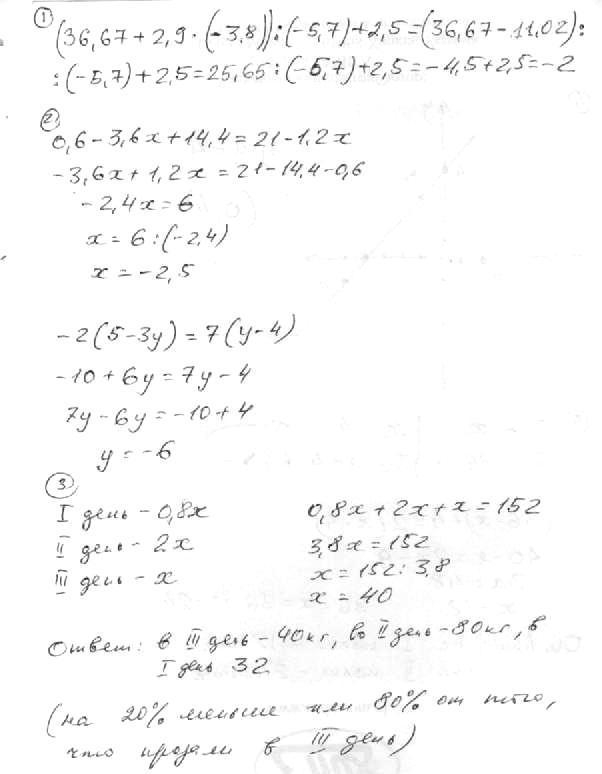 1
(36,67 + 2,9 · (-3,8)) : (-5,7) + 2,5 = (36,67 - 11,02) :
: (-5,7) + 2,5 = 25,65 : (-5,7) + 2,5 = -4,5 + 2,5 = -2
2
0,6 - 3,6x + 14,4 = 21 - 1,2x
-3,6x + 1,2x = 21 - 14,4 - 0,6
-2,4x = 6
x = 6 : (-2,4)
x = -2,5
-2(5 - 3y) = 7(y - 4)
-10 + 6y = 7y - 4
7y - 6y = -10 + 4
y = -6
3
I день - 0,8x
II день - 2x
III день - x
0,8x + 2x + x = 152
3,8x = 152
x = 152 : 3,8
x = 40
Ответ: в III день - 40 кг, во II день - 80 кг, в
I день 32
(на 20% меньше или 80% от того,
что продали в III день)